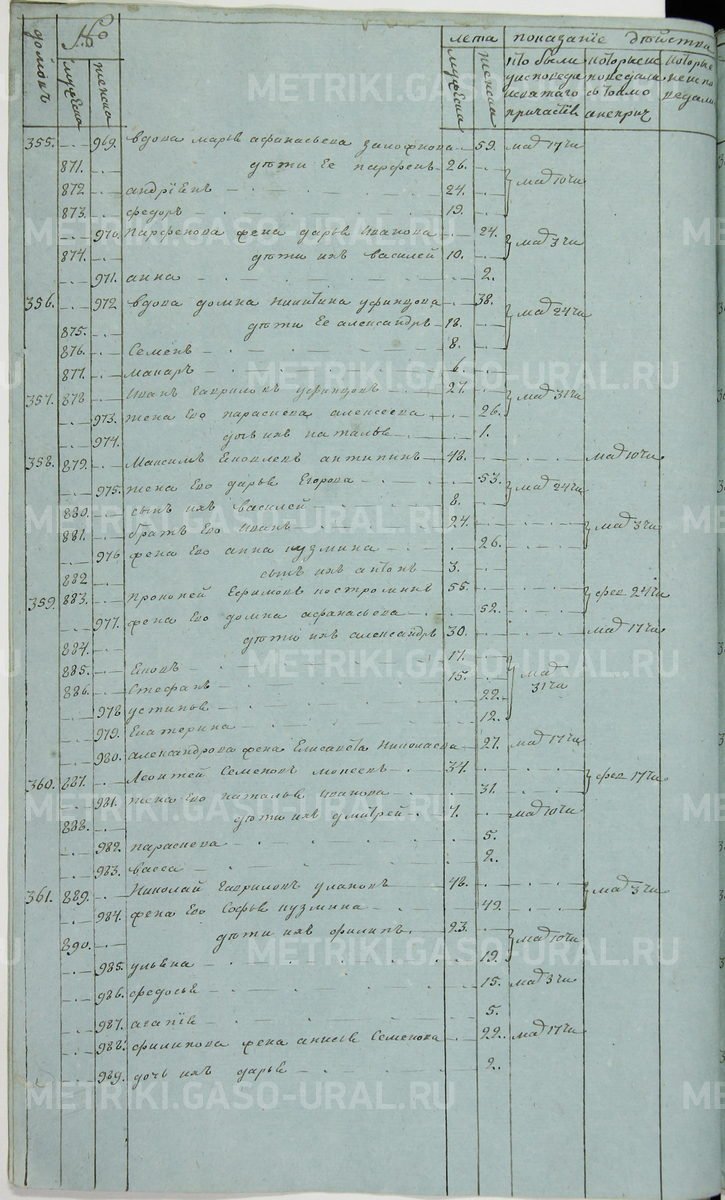 домовъ № лета показание действи
мужеска женска мужеска женска кто были у исповеди и святаго причастия которые исповедались токмо а не прич которые не исповедали
355. 969. вдова марья афанасьева 59. мар 17 чи
871. дѣти ее парфенъ 26.
872. андрiенъ 24. мар 10 чи
873. федоръ 19.
970. Парфенова жена дарья Иванова 24. мар 3 чи
874. дѣти ихъ василей 10.
971. анна 2.
356. 972 вдова домна Никитина уфинцова 38. мар 24 чи
875. дѣти Ее александръ 18.
876. Семенъ 8.
877. макаръ 6.
357. 878 Иванъ Гавриловъ уфинцовъ 27. мар 31 чи
973. жена Его параскева алексеева 26.
974. дочь ихъ наталья 1.
358. 879. Максимъ Яковлевъ антипинъ 48. мар 10 чи
975. жена Его дарья Егорова 53. мар 24 чи
880. сынъ ихъ василей 8.
881. братъ Его Иванъ 24. мар 3 чи
976 жена Его анна кузмина 26.
882 сынъ ихъ антонъ 3.
359. 883. прокопей Ефимовъ костроминъ 55. фев 24 чи
977. жена Его домна афанасьева 52.
884. дѣти ихъ александръ 30. мар 17 чи
885. Яковъ 17. мар 31 чи
886. Стефанъ 15.
978 устинья 22.
979. Екатерина 12.
980. александрова жена Елисавета Николаева 27. мар 17 чи
360. 887. Леонтей Семеновъ мокеевъ 34. фев 17 чи
981. жена Его наталья Иванова 31.
888. дѣти ихъ дмитрей 7. мар 10 чи
982. параскева 5.
983. васса 2.
361. 889. Николай Гавриловъ улановъ 48. мар 3 чи
984. жена Его Софья кузмина 49.
890. дѣти ихъ филипъ 23. мар 10 чи
985. ульяна 19.
986. федосья 15. мар 3 чи
987. агапiя 5.
988. филипова жена анисья Семенова 22. мар 17 чи
989. дочь ихъ дарья 2.
METRIKI.GASO-URAL.RU